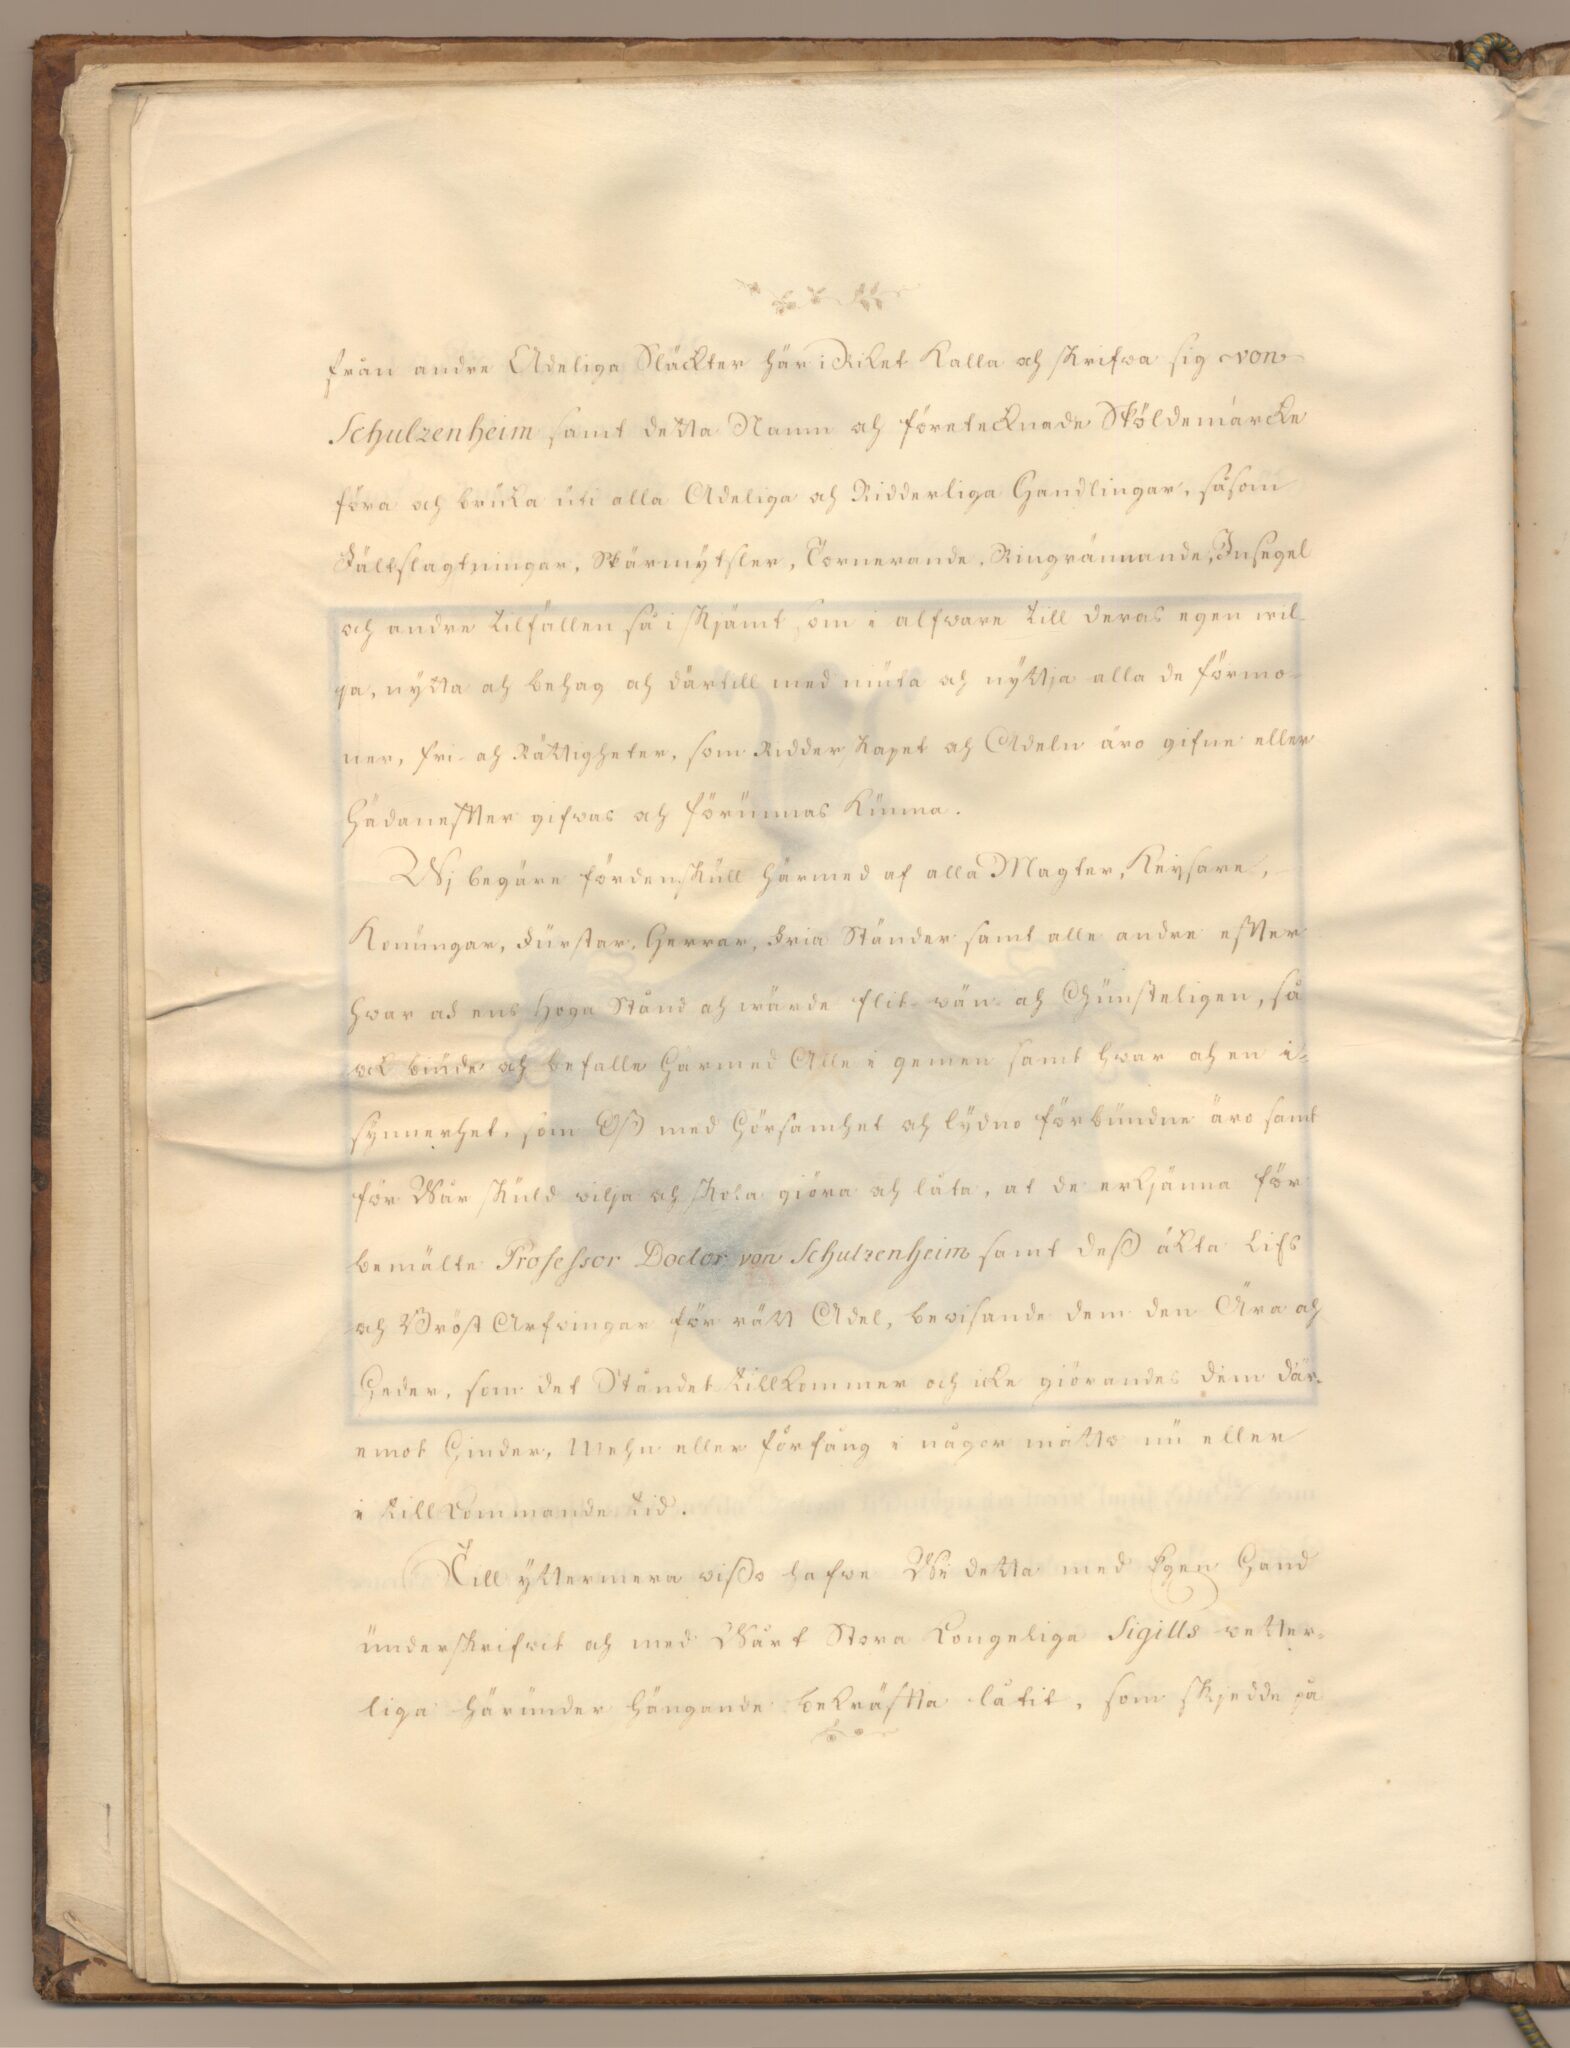 från andre Adeliga Släckter här i Riket kalla och skrifwa sig von
Schulzenheim samt detta Namn och företecknade Sköldemärcke
föra och bruka uti alla Adeliga och Ridderliga Handlingar, såsom
Fältslagtningar, Skärmytsler, Tornerande, Ringrännande, Insegel
och andre tilfällen så i skjämt som i alfware till deras egen wil-
ja, nytta och behag och därtill med niuta och nyttja alla de förmo-
ner, fri- och Rättigheter, som Ridderskapet och Adeln äro gifne eller
hädanefter gifwas och förunnas kunna.
Wj begäre fördenskull härmed af alla Magter, Keysare,
Konungar, Furstar, Herrar, Fria Ständer samt alle andre efter
hwar ad ens höga Stånd och wärde flit- wän- och Gunsteligen, så
ock biude och befalle härmed Alle i gemen samt hwar och en i-
synnerhet, som Oß med hörsamhet och lydno förbundne äro samt
för Wår skuld wilja och skola giöra och låta, at de erkjänna för
bemälte Professor Doctor von Schulzenheim samt deß äkta Lifs
och Bröst Arfwingar för rätt Adel, bewisande dem den Ära och
Heder, som det Ståndet tillkommer och icke giörandes dem där-
emot hinder, mehn eller förfång i någor måtto nu eller
i tillkommande tid.
Till yttermera wißo hafwe Wi detta med Egen Hand
underskrifwit och med Wårt Stora Kongelige Sigills wetter-
liga härunder hängande bekräfta låtit, som skjedde på